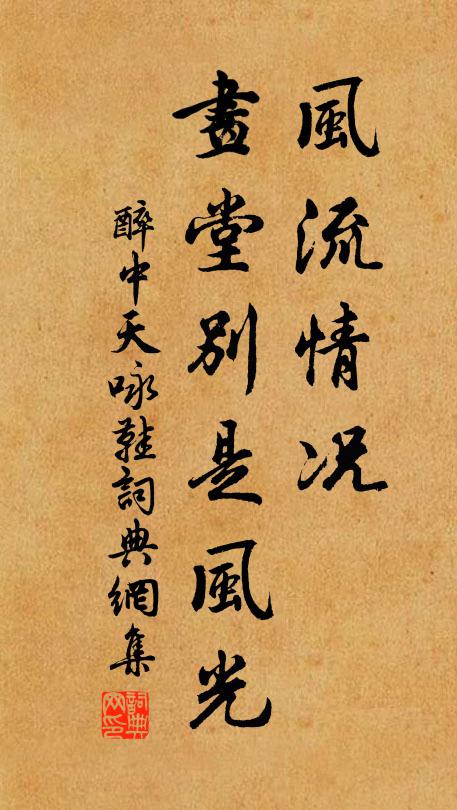 風流情况
畫堂別是風光
醉中天咏鞋詞典網集
詞典網印